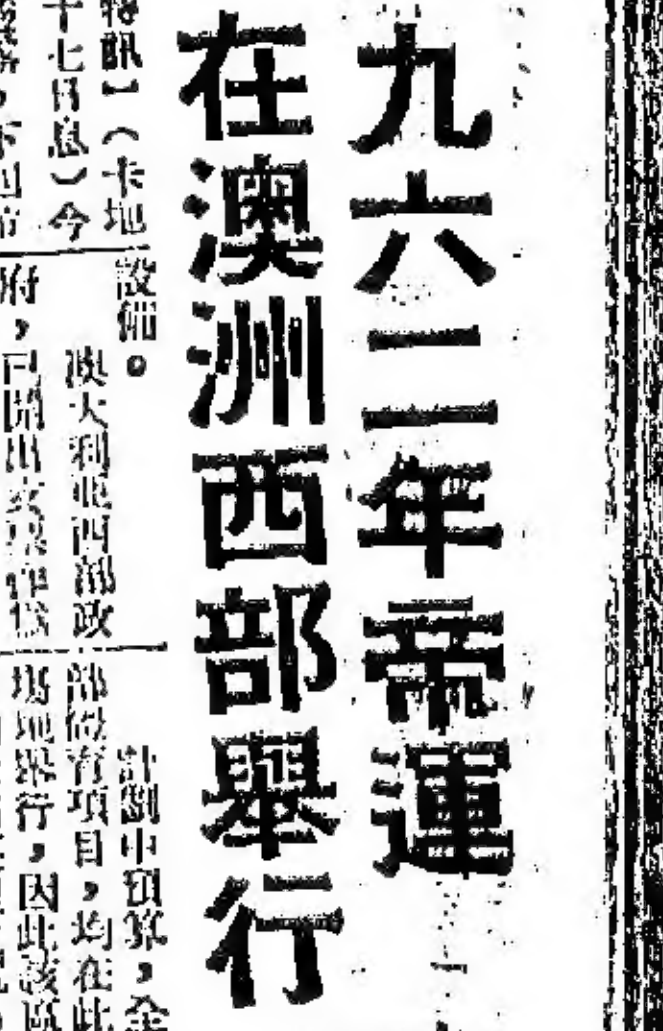 九六二年帝運
在澳洲西部舉行
特訊】(卡地
十七日息)今
設備。
澳大利亞西部政
府,已開出支票作為
計劃中預算,全
部體育項目,均在此
場地舉行,因此該區